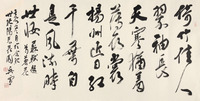 倚竹佳人
翠袖長
天寒猶著
薄羅裳
揚州近日紅
千葉自
是風流時
世妝